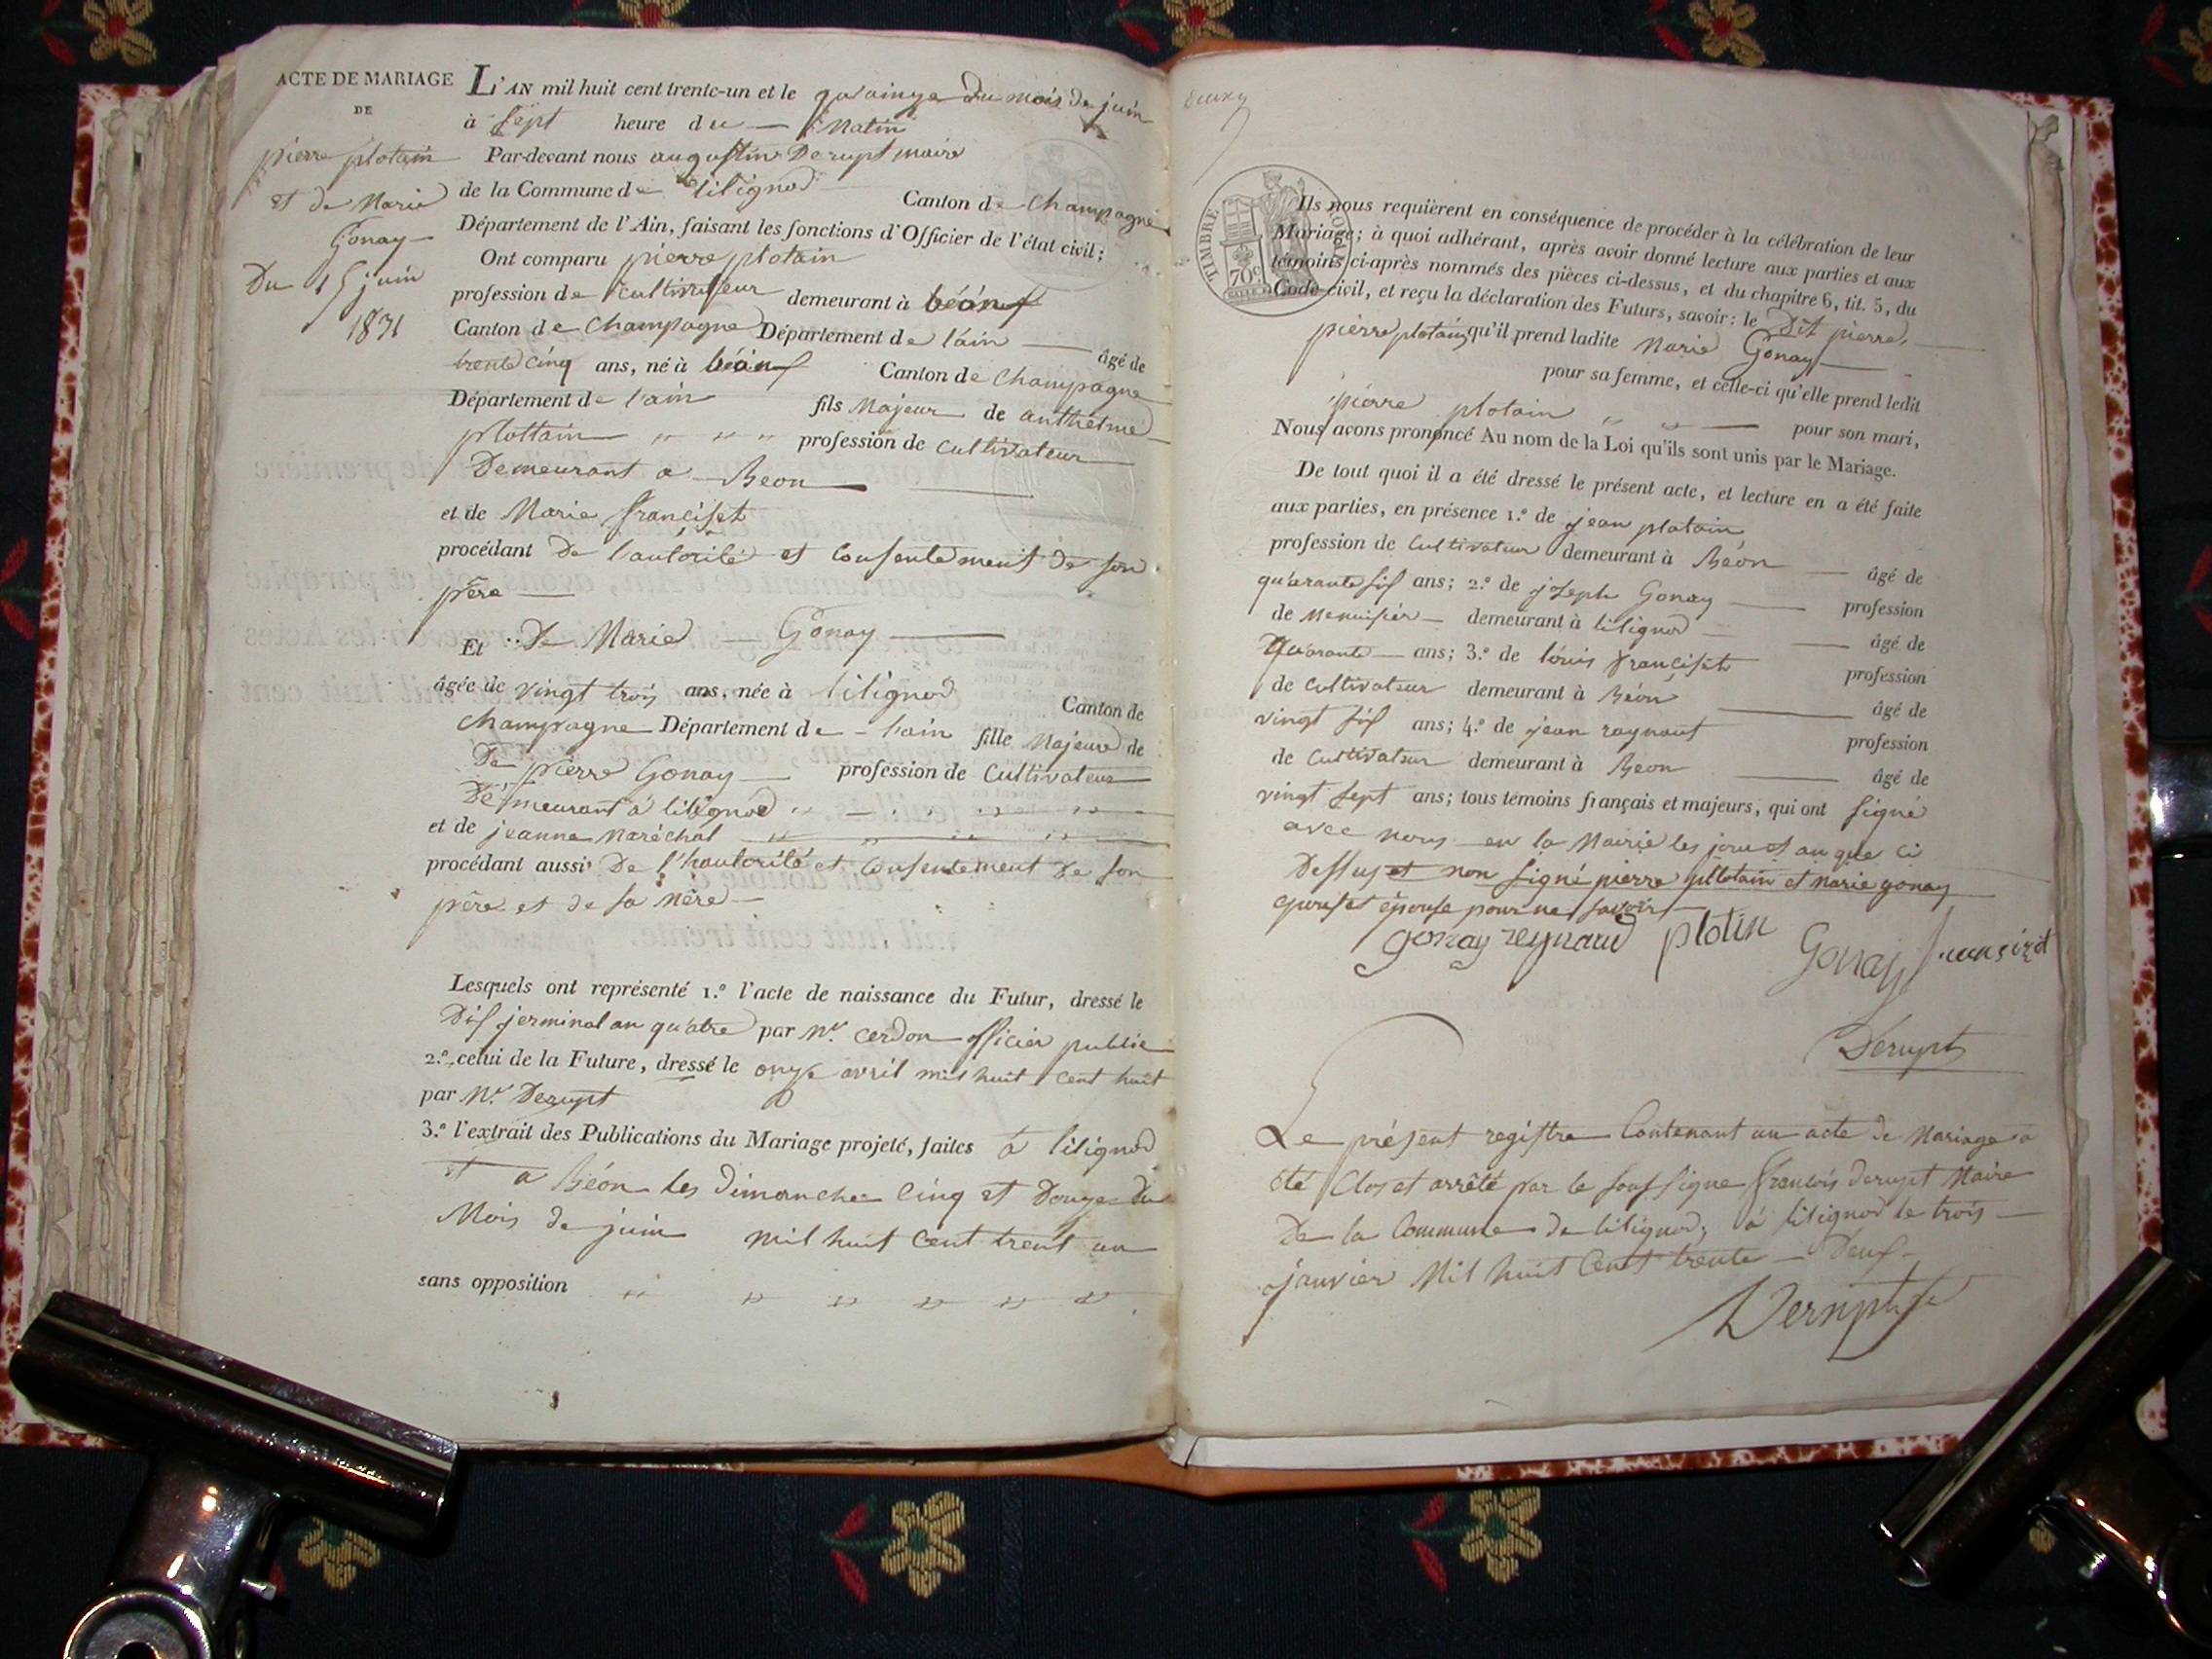 ACTE DE MARIAGE
DE
pierre plotain
et de Marie
Gonay
Du 15 juin
1831
L'AN mil huit cent trente-un et le quainze du mois de juin
à sept heure du matin
Par-devant nous augustin Derupt maire
de la Commune de lilignod Canton de Champagne
Département de l'Ain, faisant les fonctions d'Officier de l'état civil;
Ont comparu pierre plotain
profession de cultivateur demeurant à béon
Canton de Champagne Département de l'ain âgé de
trente cinq ans, né à béon Canton de Champagne
Département de l'ain fils Majeur de anthelme
plottain " " " " profession de cultivateur
Demeurant a Beon
et de Marie franciset
procédant De l'autorité et Consentement de son
père
Et De Marie Gonay
âgée de vingt trois ans, née à lilignod Canton de
Champagne Département de l'ain fille Majeure de
De pierre Gonay profession de Cultivateur
Demeurant à lilignod
et de jeanne maréchal
procédant aussi De l'hautorité et Consentement De son
père et de sa mère
Lesquels ont représenté 1.º l'acte de naissance du Futur, dressé le
Dis jerminal an quatre par Mr. Cerdon officier public
2.º celui de la Future, dressé le onze avril mil huit cent huit
par Mr. Derupt
3.º l'extrait des Publications du Mariage projeté, faites à lilignod
et a Béon les dimanche Cinq et Douze du
Mois de juin mil huit Cent trent un
sans opposition " " " " " "
TIMBRE ROYAL
70c
Ils nous requièrent en conséquence de procéder à la célébration de leur
Mariage; à quoi adhérant, après avoir donné lecture aux parties et aux
témoins ci-après nommés des pièces ci-dessus, et du chapitre 6, tit. 5, du
Code civil, et reçu la déclaration des Futurs, savoir: le Dit pierre
pierre plotain qu'il prend ladite Marie Gonay
pour sa femme, et celle-ci qu'elle prend ledit
pierre plotain pour son mari,
Nous avons prononcé Au nom de la Loi qu'ils sont unis par le Mariage.
De tout quoi il a été dressé le présent acte, et lecture en a été faite
aux parties, en présence 1.º de jean plotain
profession de Cultivateur demeurant à Béon âgé de
quarante sis ans; 2.º de joseph Gonay profession
de menuisier demeurant à lilignod âgé de
quarante ans; 3.º de louis francisct profession
de Cultivateur demeurant à Béon âgé de
vingt sis ans; 4.º de jean raynaut profession
de Cultivateur demeurant à Beon âgé de
vingt sept ans; tous témoins français et majeurs, qui ont signé
avec nous en la Mairie les jour et an que ci
Dessus et non signé pierre plotain et marie gonay
épouse pour ne savoir
gonay reynaud plotin Gonay
Derupt
Le présent registre Contenant un acte de Mariage a
été Clos et arrêté par le soussigne francois derupt Maire
De la Commune de lilignod; à lilignod le trois
janvier Mil huit Cent trente Deus
Derupt